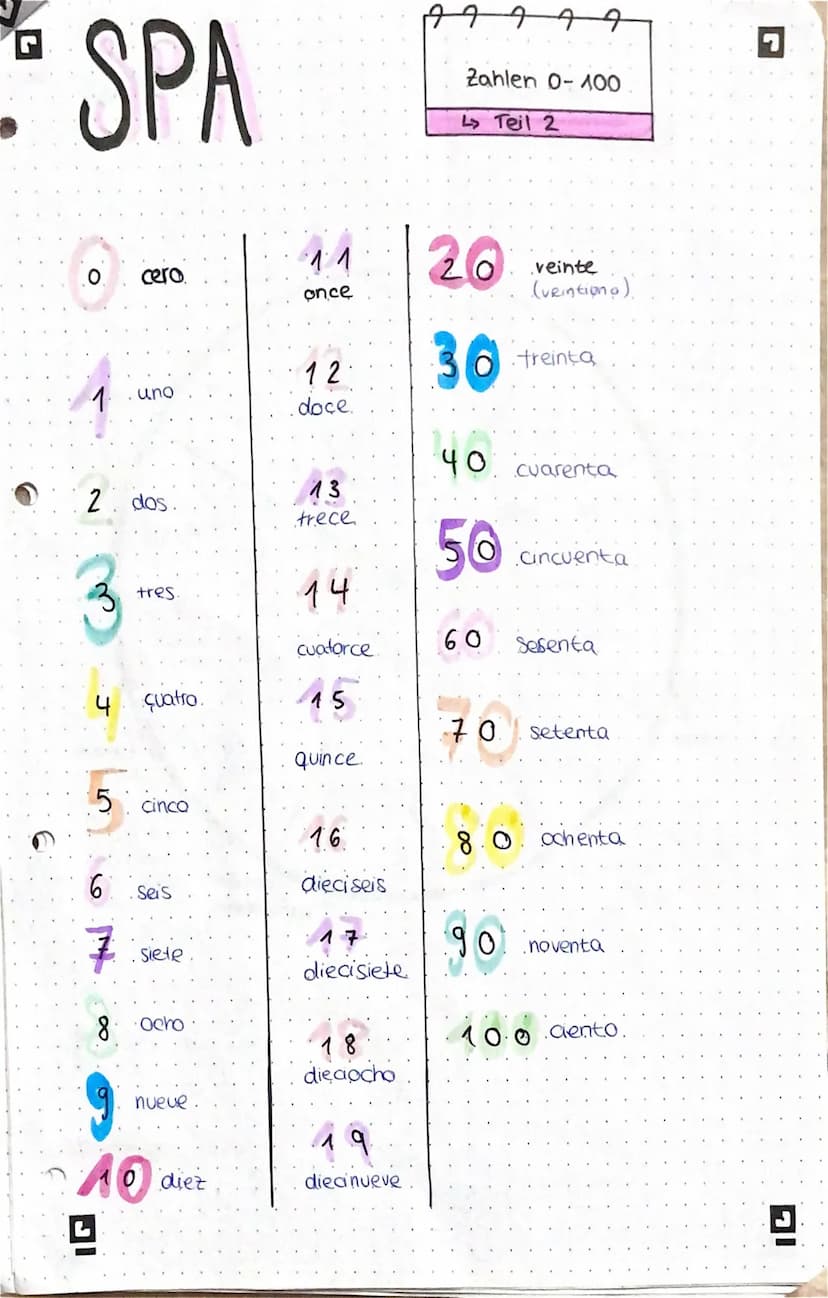 SPA
Zahlen 0-100
↳ Teil 2
0 cero
1 uno
2 dos
3 tres
4 cuatro
5 cinco
6 seis
7 siete
8 ocho
9 nueve
10 diez
11
once
12
doce
13
trece
14
cuatorce
15
quince
16
dieciseis
17
diecisiete
18
dieciocho
19
diecinueve
20 veinte
(veintiuno)
30 treinta
40 cuarenta
50 cincuenta
60 sesenta
70 setenta
80 ochenta
90 noventa
100 ciento